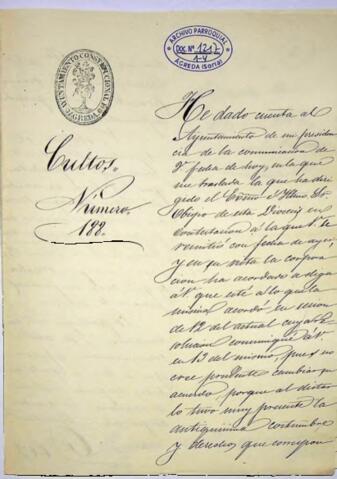 AYUNTAMIENTO CONSTITUCIONAL DE AGREDA
ARCHIVO PARROQUIAL
DOC. Nº 1217
1-V
AGREDA (Soria)
Cultos.
Número.
188.
He dado cuenta al
Ayuntamiento de mi presiden
cia de la comunicacion de
V. fecha de hoy, en la que
me traslada la que ha diri
gido el Excmo é Illmo Sr.
Obispo de esta Diocesis en
Contestacion á la que V. le
remitió con fecha de ayer,
y en su vista la corpora
cion ha acordado se diga
á V. que esté a lo que la
misma acordó en sesion
de 12 del actual cuya re
solucion comuniqué á V.
en 13 del mismo, pues no
cree prudente cambiar su
acuerdo, porque al dictar
lo tuvo muy presente la
antiquisima costumbre
y derechos que correspon